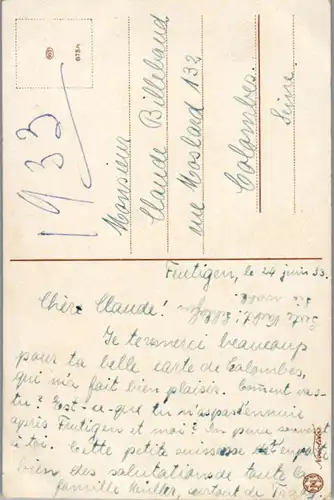 1933
Monsieur
Claude Billebaud
rue Moslard 132
Colombes.
Seine.
Frutigen, le 24 juin 33.
Chère Claude!
Je te remerci beaucoup
pour ta belle carte de Colombes,
qui m'a fait bien plaisir. Coment vas-
tu? Est-ce-que tu n'as pas l'ennuie
après Frutigen et moi? Je pense souvent
à toi. Cette petite suissese
bien des salutations de toute la
famille